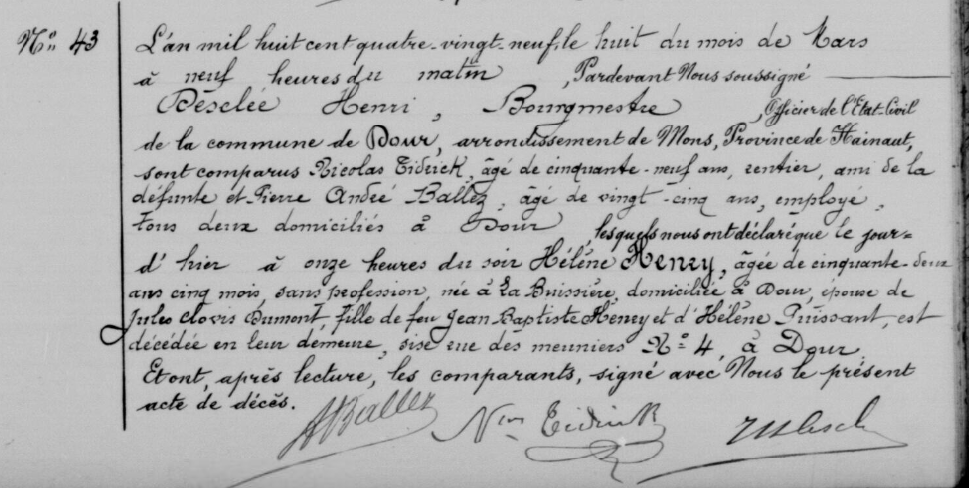 N° 43
L'an mil huit cent quatre-vingt-neuf, le huit du mois de Mars
à neuf heures du matin, Pardevant Nous soussigné
Désclée Henri, Bourgmestre, Officier de l'Etat-Civil
de la commune de Dour, arrondissement de Mons, Province de Hainaut,
sont comparus Nicolas Tidrick, âgé de cinquante-neuf ans, rentier, ami de la
défunte et Pierre André Ballez, âgé de vingt-cinq ans, employé,
tous deux domiciliés à Dour, lesquels nous ont déclaré que le jour=
d'hier à onze heures du soir Hélène Henry, âgée de cinquante-deux
ans cinq mois, sans profession, née à La Buissière, domiciliée à Dour, épouse de
Jules Clovis Dumont, fille de feu Jean Baptiste Henry et d'Hélène Puissant, est
décédée en leur demeure, sise rue des meuniers N° 4, à Dour.
Et ont, après lecture, les comparants, signé avec Nous le présent
acte de décès.
Ballez Tidrick